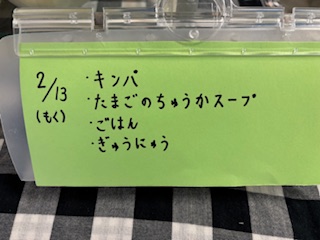 2/13
(もく)
・キンパ
・たまごのちゅうかスープ
・ごはん
・ぎゅうにゅう